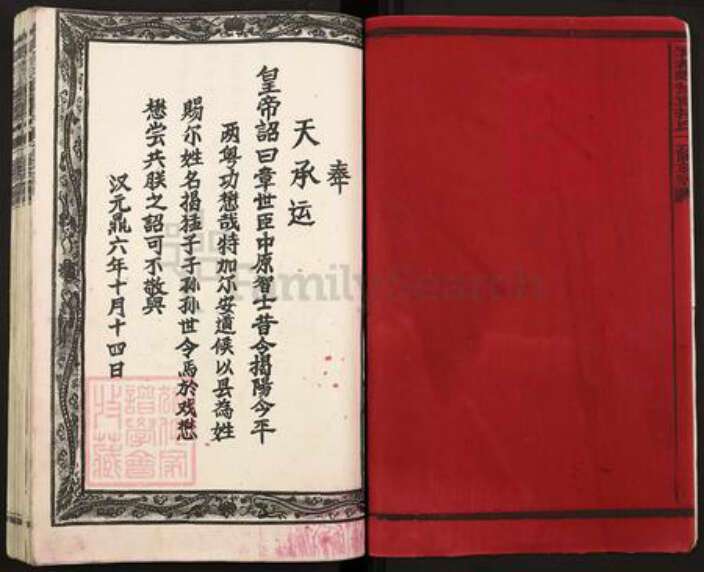 奉
天承运
皇帝詔曰章世臣中原智士昔令揭陽今平
两粤功懋哉特加尔安道候以县為姓
賜尔姓名揭猛子子孙孙世令焉於戏懋
懋尝共朕之詔可不敬與
汉元鼎六年十月十四日
FamilySearch